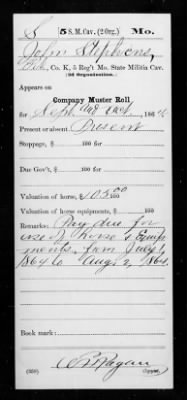 S 5 S. M. Cav. (2 Org.) Mo.
John Stephens,
Pvt., Co. K, 5 Reg't Mo. State Militia Cav.
(2d Organization.)
Appears on
Company Muster Roll
for Sept and Oct, 1864
Present or absent Present
Stoppage, $ 100 for
Due Gov't, $ 100 for
Valuation of horse, $ 105 00 100
Valuation of horse equipments, $ 100
Remarks: Pay due for
use of horse & Equip
ments, from July 1,
1864 to Aug. 2, 1864.
Book mark:
(359) Copyist.